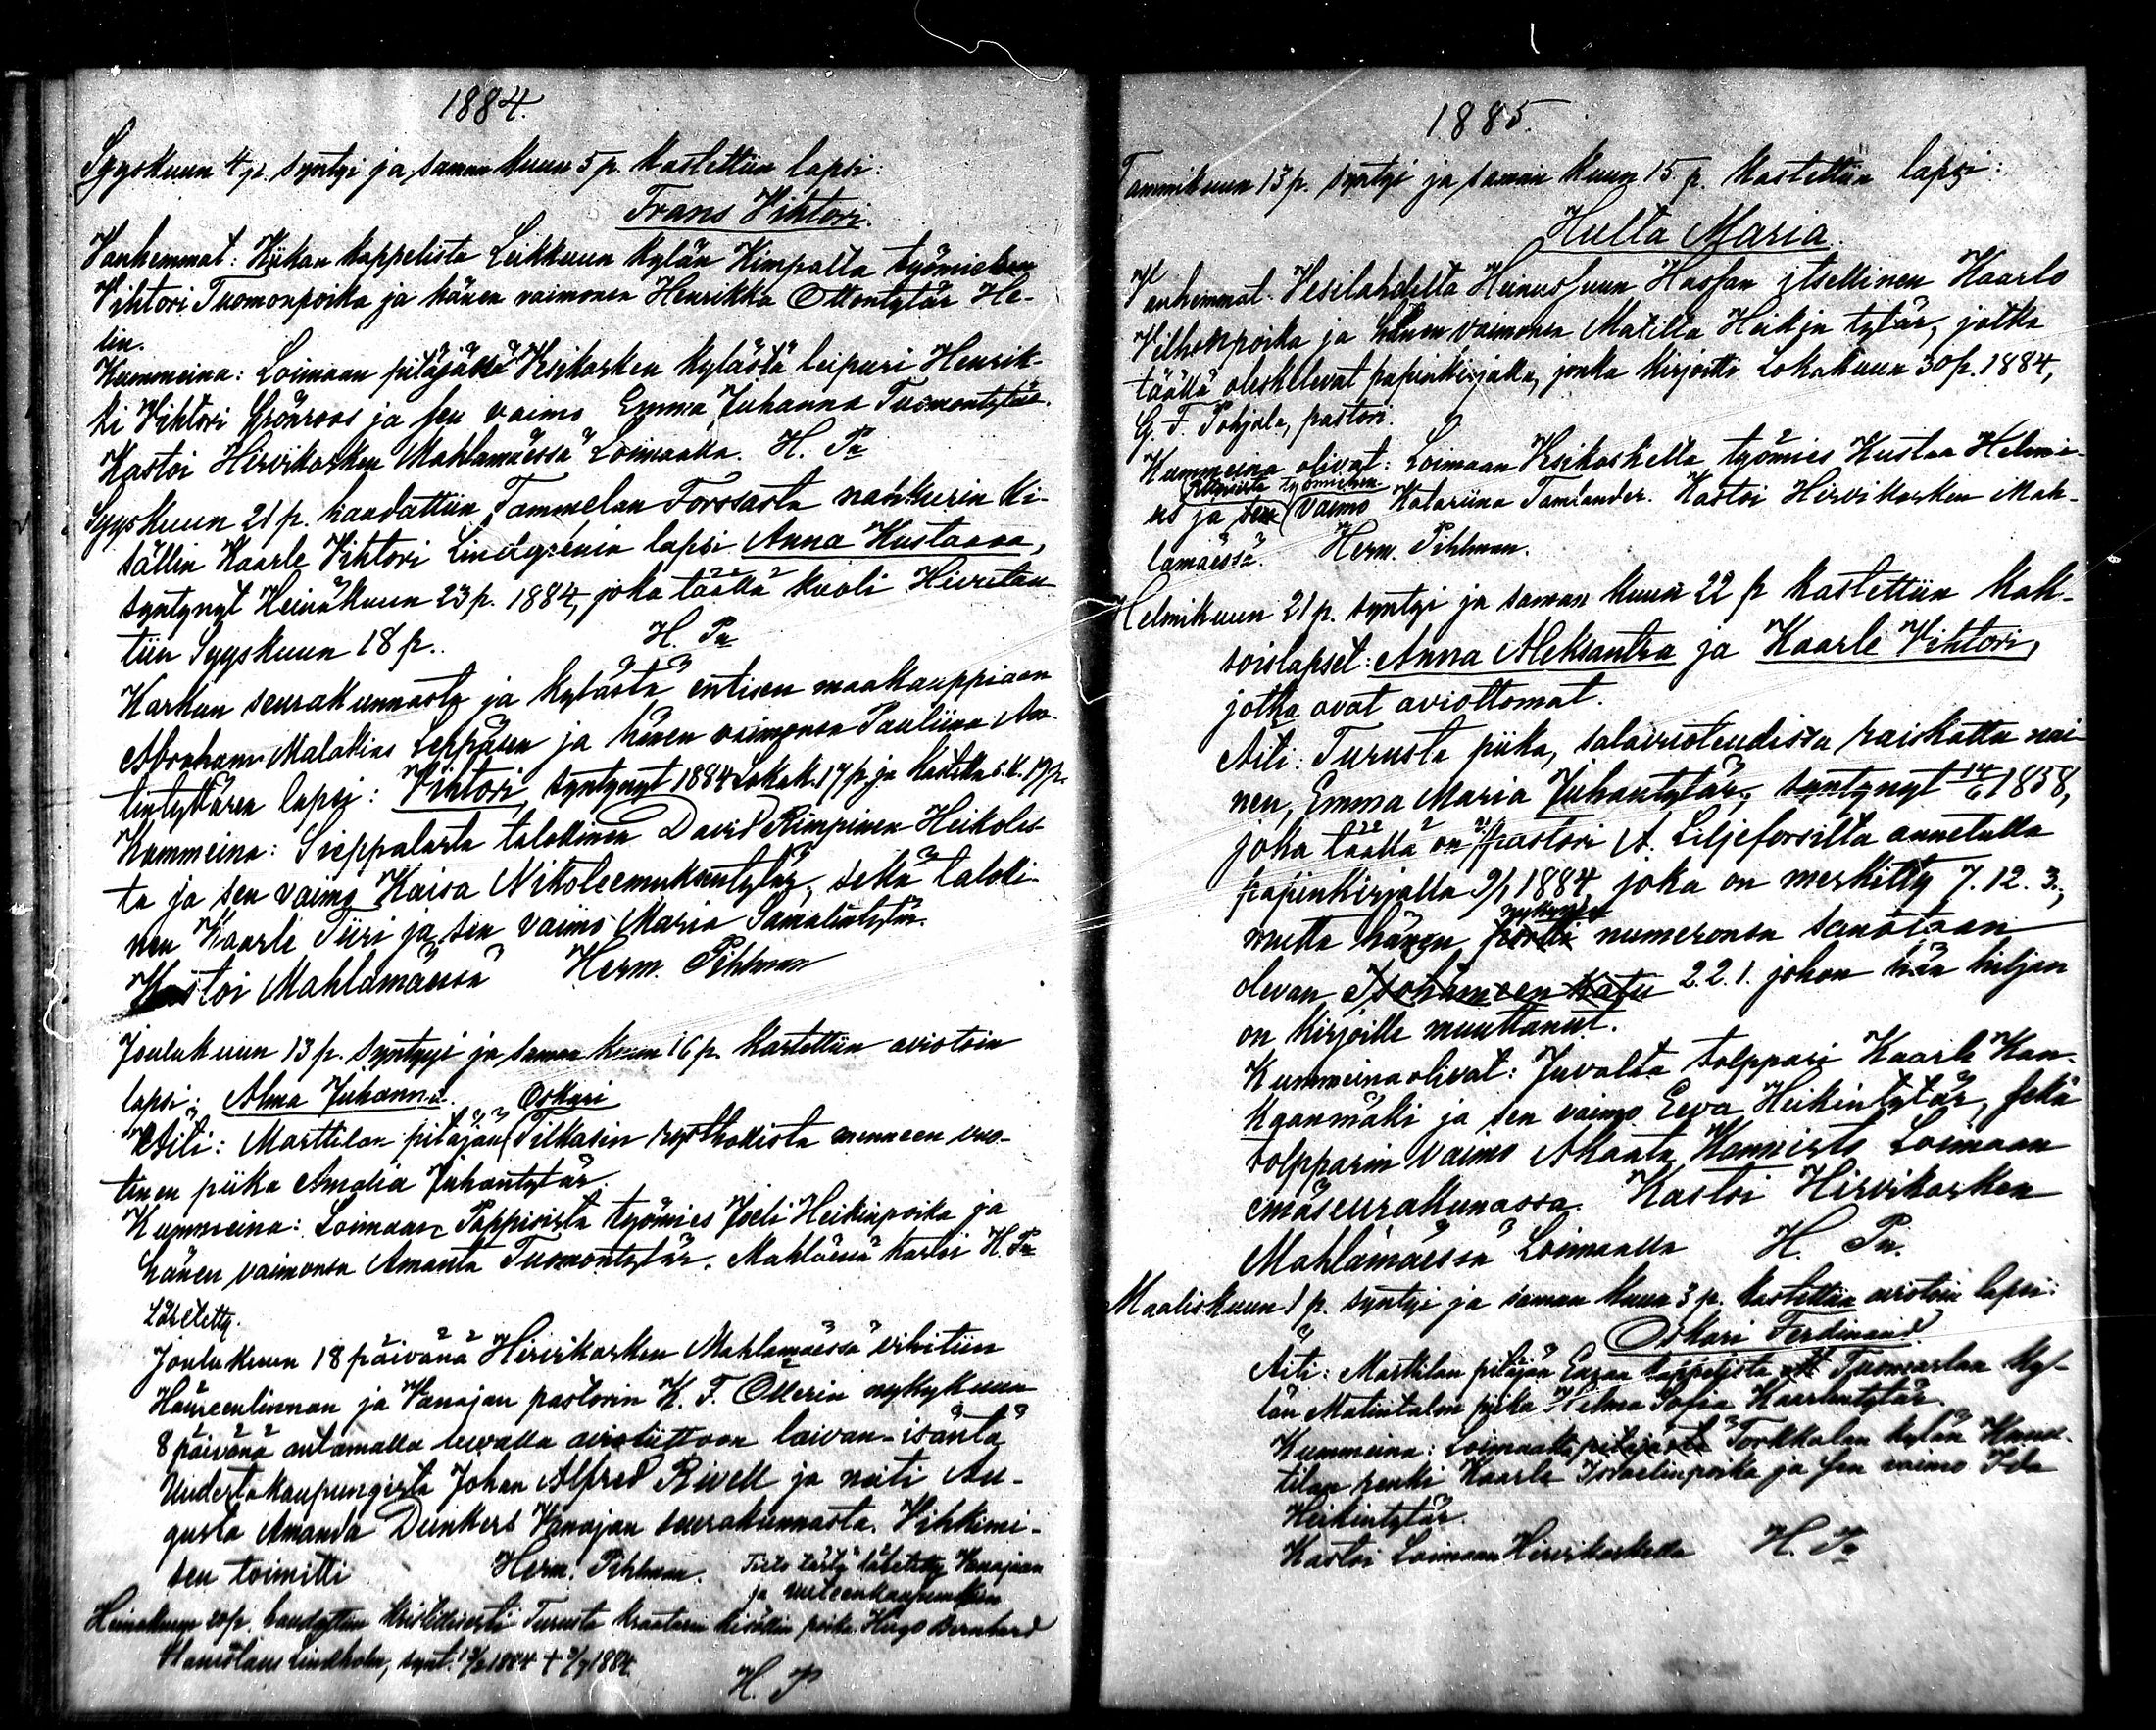 1884.
Syyskuun 4 p. syntyi ja saman kuun 5 p. kastettiin lapsi:
Frans Vihtori.
Vanhemmat: Kiikan kappelista Leikkuun kylän Kimpalta työmiehen
Vihtori Tuomonpoika ja hänen vaimonsa Henrikka Ottontytär He-
lin.
Kummeina: Loimaan pitäjästä Vesikosken kylästä leipuri Henrik-
ki Vihtori Grönroos ja sen vaimo Emma Juhanna Tuomontytär.
Kastoi Hirvikosken Mahlamäessä Loimaalla. H. Pn
Syyskuun 21 p. haudattiin Tammelan Forssasta nahkurin ki-
sällin Kaarle Vihtori Lindgrénin lapsi Anna Kustaava,
syntynyt Heinäkuun 23 p. 1884, joka täällä kuoli
tiin Syyskuun 18 p. H. Pn
Karkun seurakunnasta ja kylästä entisen maakauppiaan
Abraham Malakias Leppäsen ja hänen vaimonsa Pauliina An-
tintyttären lapsi: Vihtori, syntynyt 1884 Lokak. 17 p. ja kastettu s. k. 19 p.
Kummeina: Sieppalasta talokinen David Rimpinen Heikolas-
ta ja sen vaimo Kaisa Nikoteemuksentytär, sekä taloki-
nen Kaarle Tiiri ja sen vaimo Maria Samulintytär.
Kastoi Mahlamäessä Herm. Pihlman
Joulukuun 13 p. syntyi ja saman kuun 16 p. kastettiin aviotoin
lapsi: Alma Juhanna. Oskari
Äiti: Marttilan pitäjän Tilkasin rusthollista menneen vuo-
tinen piika Amalia Juhantytär.
Kummeina: Loimaan Pappisista työmies Joeli Heikinpoika ja
hänen vaimonsa Amanta Tuomontytär. Mahlässä kastoi H. Pn
Lähetetty.
Joulukuun 18 päivänä Hirvikosken Mahlamäessä vihitiin
Hämeenlinnan ja Vanajan pastorin K. F. Ollerin nykykuun
8 päivänä antamalla luvalla avioliittoon laivan-isäntä
Uudestakaupungista Johan Alfred Rivell ja neiti Au-
gusta Amanda Dunkers Vanajan seurakunnasta. Vihkimi-
sen toimitti Herm. Pihlman. Tieto tästä lähetetty Vanajaan
ja uuteenkaupunkiin
Heinäkuun 20 p. haudattiin kristillisesti Turusta kraatarin kisällin poika Hugo Bernhard
Stanislaus Lindholm, synt. 1884 + 1884.
H. P
1885.
Tammikuun 13 p. syntyi ja saman kuun 15 p. kastettiin lapsi:
Hulta Maria.
Vanhemmat. Vesilahdelta Heinussuun Hassan itsellinen Kaarlo
Vilhonpoika ja hänen vaimonsa Matilta Heikin tytär, jotka
täällä oleskelevat papinkirjalla, jonka kirjoitti Lokakuun 30 p. 1884,
G. F. Pohjala, pastori.
Kummeina olivat: Loimaan Vesikoskella työmies Kustaa Helmi-
työmiehen
us ja sen vaimo Katariina Tamlander. Kastoi Hirvikosken Mah-
lamäessä. Herm. Pihlman.
Helmikuun 21 p. syntyi ja saman kuun 22 p kastettiin kak-
soislapset: Anna Aleksantra ja Kaarle Vihtori,
jotka ovat aviottomat.
Äiti: Turusta piika, salavuoteudissa raiskattu nai-
nen, Emma Maria Juhantytär, syntynyt 14/6 1858,
joka täällä on pastori A. Liljeforsilta annetulla
papinkirjalla 9/1 1884 joka on merkitty 7. 12. 3.,
nykyinen
mutta hänen numeronsa sanotaan
olevan 2.2.1. johon hän hiljan
on kirjoille muuttanut.
Kummeina olivat: Juvalta tolppari Kaarle Kan-
kaanmäki ja sen vaimo Eeva Heikintytär, sekä
tolpparin vaimo Akaata Kannisto Loimaan
emäseurakunassa. Kastoi Hirvikosken
Mahlamäessä Loimaalla H. Pn.
Maaliskuun 1 p. syntyi ja saman kuun 3 p. kastettiin aviotoin lapsi:
Oskari Ferdinand.
Äiti: Marttilan pitäjän Euran kappelista Tuomarlan ky-
län Matintalon piika Hilma Sofia Kaarlentytär.
Kummeina: Loimaalta pitäjästä Torkkalan kylän
tilan renki Kaarle Israelinpoika ja sen vaimo Ida
Heikintytär.
Kastoi Loimaan Hirvikoskella H. Pn